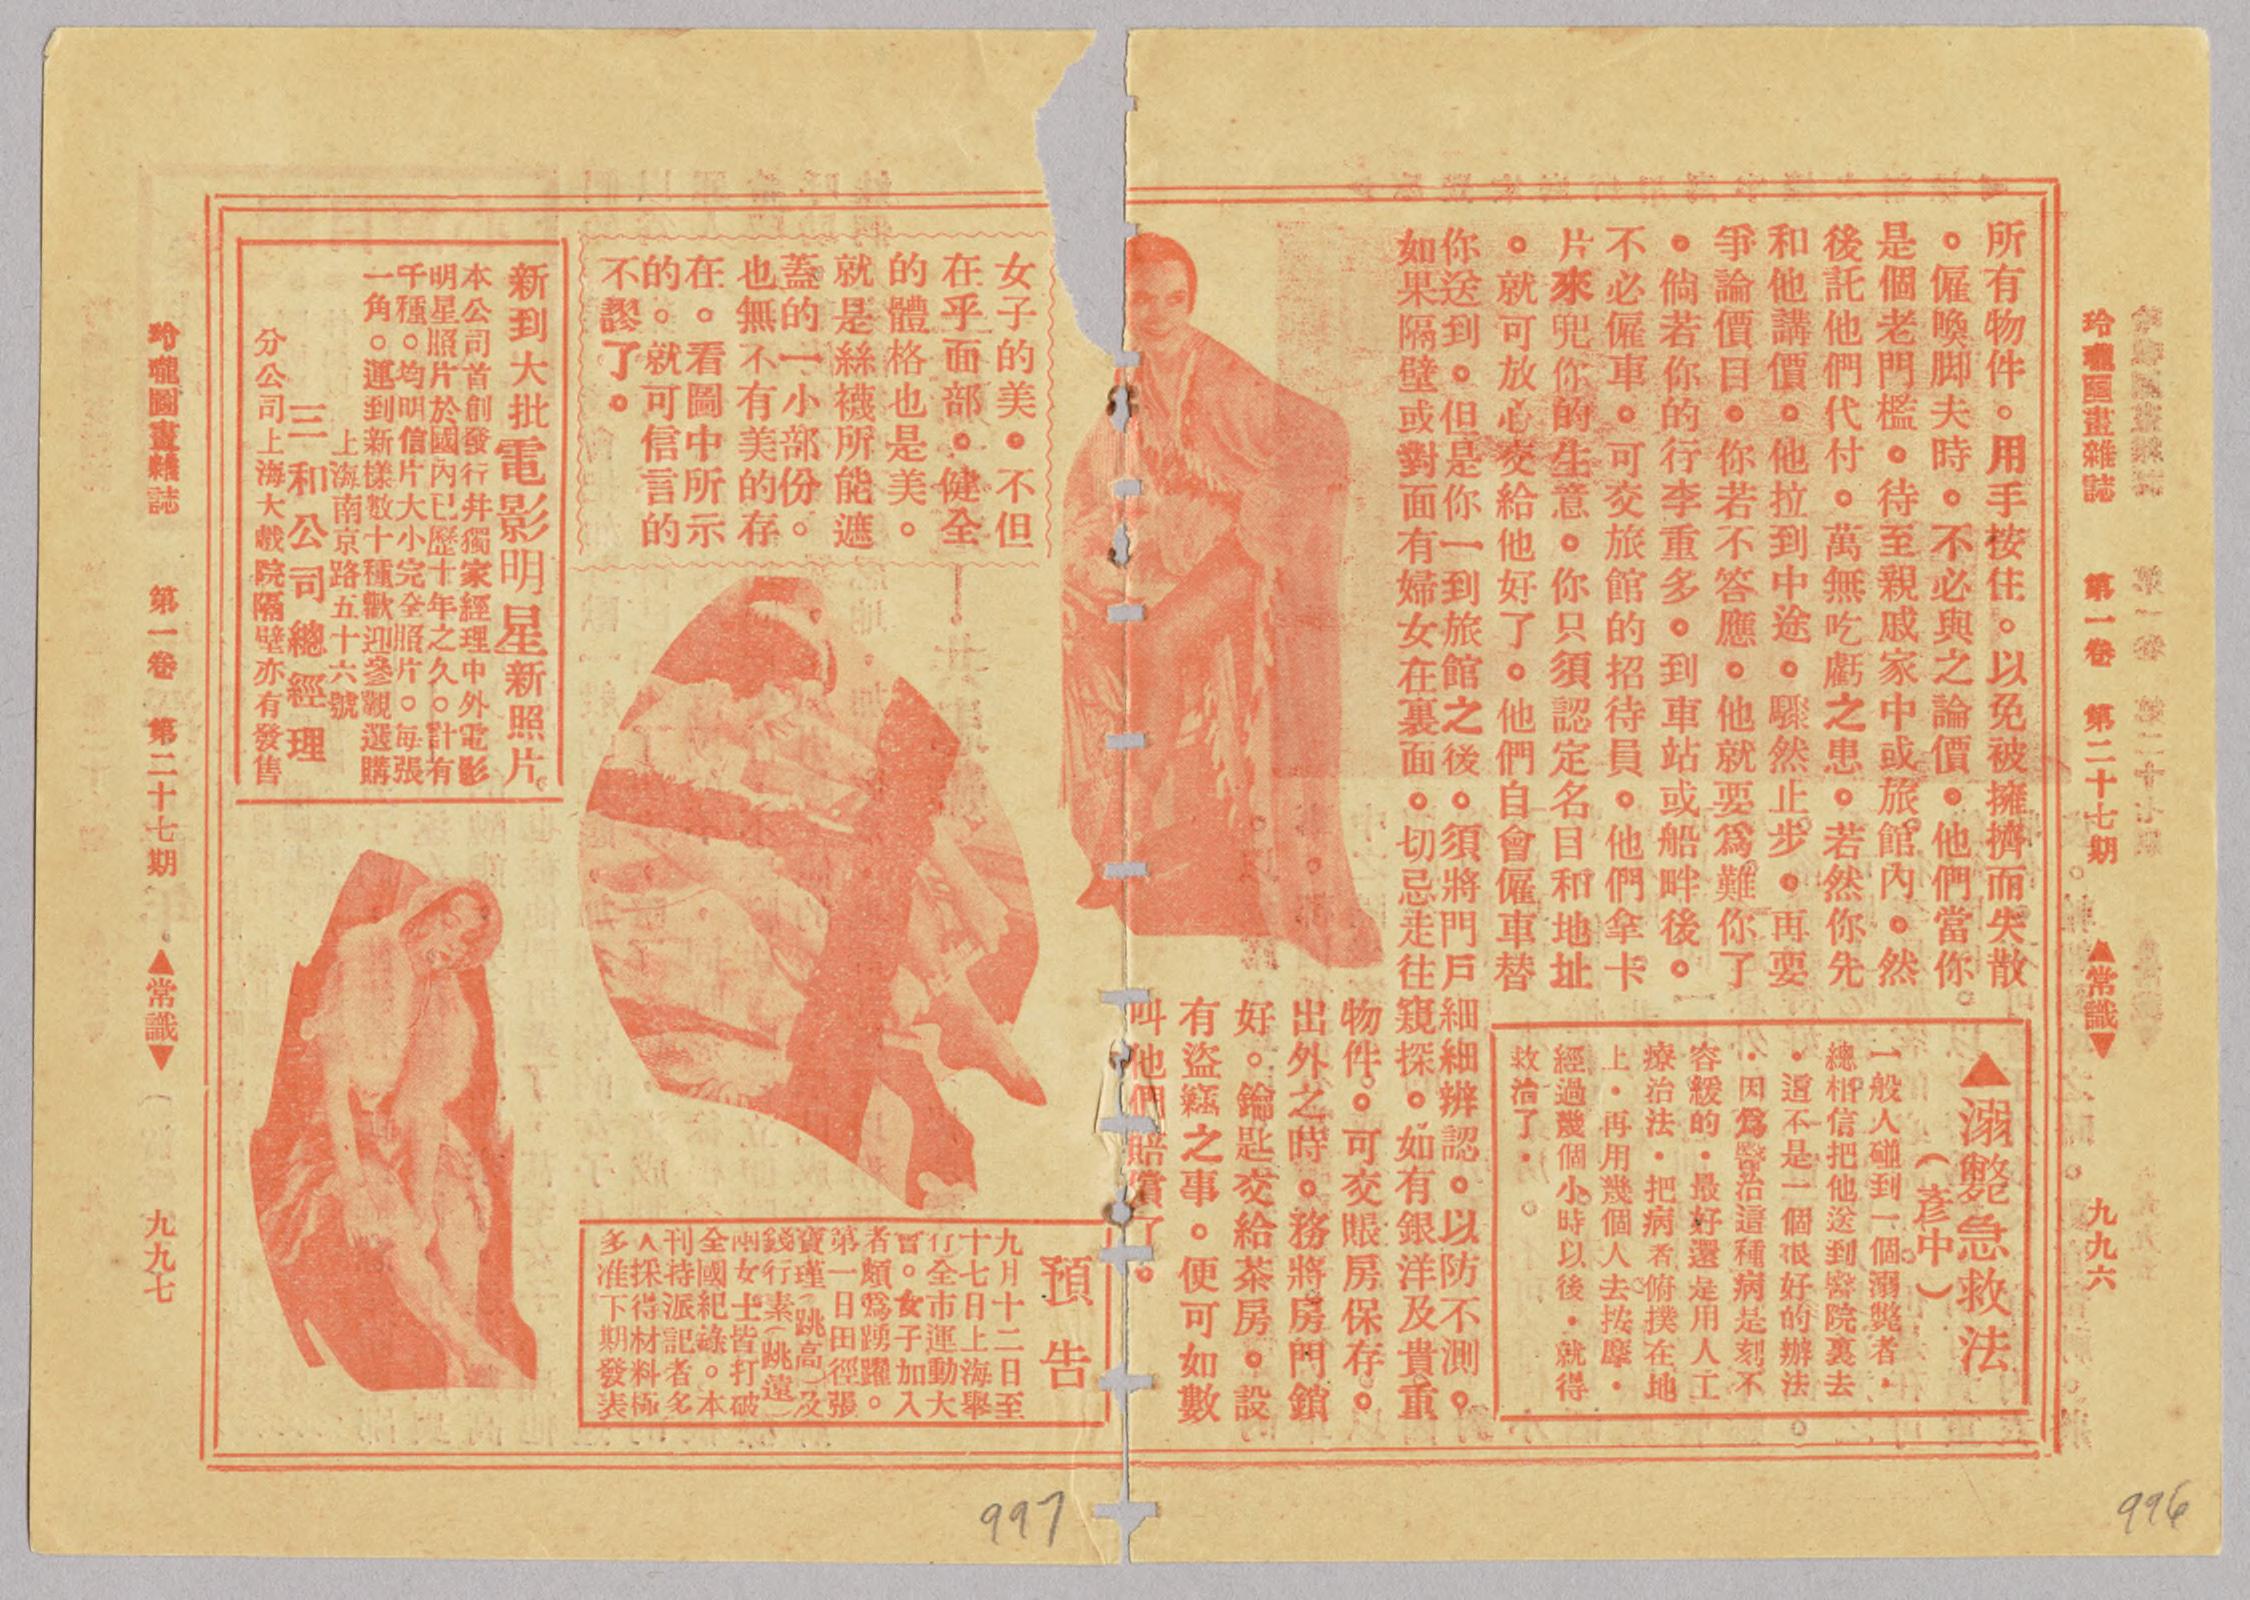 玲瓏圖畫雜誌　第一卷　第二十七期　▲常識▼　九九六
所有物件。用手按住。以免被擁擠而失散
。僱喚脚夫時。不必與之論價。他們當你
是個老門檻。待至親戚家中或旅館內。然
後託他們代付。萬無吃虧之患。若然你先
和他講價。他拉到中途。驟然止步。再要
爭論價目。你若不答應。他就要爲難你了
。倘若你的行李重多。到車站或船畔後。
不必僱車。可交旅館的招待員。他們拿卡
片來兜你的生意。你只須認定名目和地址
。就可放心交給他好了。他們自會僱車替
你送到。但是你一到旅館之後。須將門戶細細辨認。以防不測。
如果隔壁或對面有婦女在裏面。切忌走往窺探。如有銀洋及貴重
物件。可交賬房保存。
出外之時。務將房門鎖
好。鑰匙交給茶房。設
有盜竊之事。便可如數
叫他們賠償了。
▲溺斃急救法
（彥中）
一般人碰到一個溺斃者・
總相信把他送到醫院裏去
・這不是一個很好的辦法
・因爲醫治這種病是刻不
容緩的・最好還是用人工
療治法・把病者俯撲在地
上・再用幾個人去按摩・
經過幾個小時以後・就得
救治了・
女子的美。不但
在乎面部。健全
的體格也是美。
就是絲襪所能遮
蓋的一小部份。
也無不有美的存
在。看圖中所示
的。就可信言的
不謬了。
預告
九月十二日至
十七日上海舉
行全市運動大
會。女子加入
者頗爲踴躍。
第一日田徑張
寶瑾（跳高）及
錢行素（跳遠）
兩女士皆打破
全國紀錄。本
刊持派記者多
人採得材料極
多准下期發表
新到大批電影明星新照片。
本公司首創發行井獨家經理中外電影
明星照片於國內已歷十年之久。計有
千種。均明信片大小完全照片。每張
一角。運到新樣數十種歡迎參觀選購
上海南京路五十六號
三和公司總經理
分公司上海大戲院隔壁亦有發售
玲瓏圖畫雜誌　第一卷　第二十七期　▲常識▼　九九七
997
996